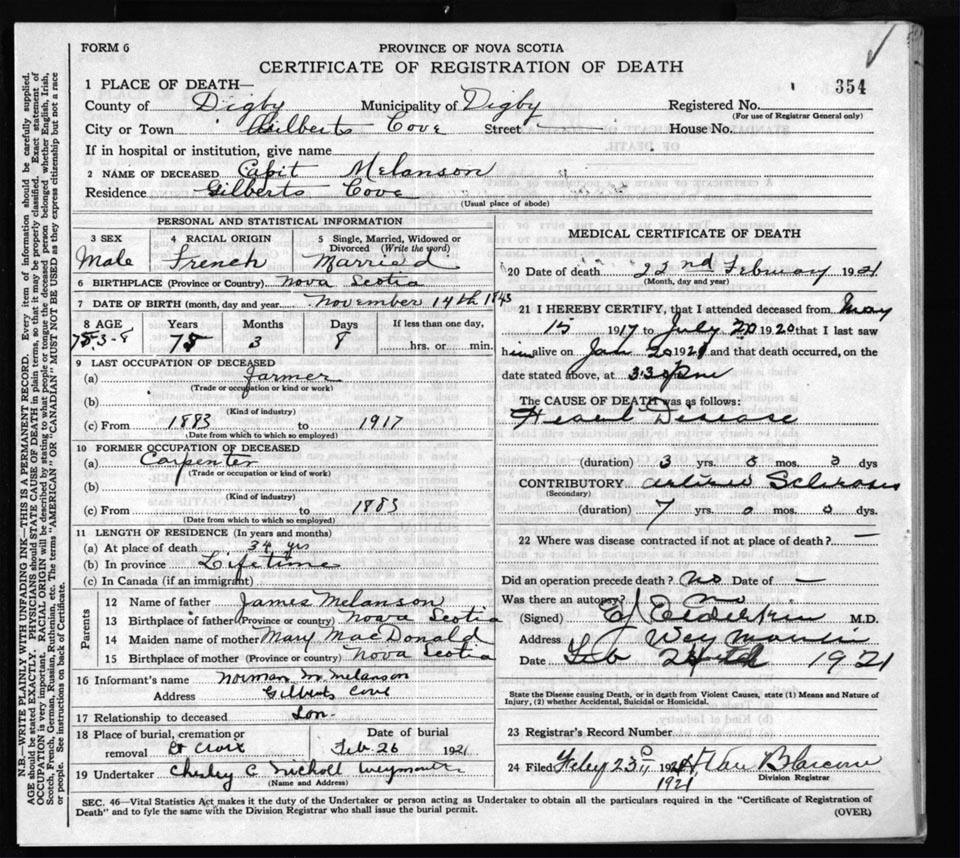 FORM 6
PROVINCE OF NOVA SCOTIA
CERTIFICATE OF REGISTRATION OF DEATH
354
1 PLACE OF DEATH—
County of Digby Municipality of Digby Registered No.
(For use of Registrar General only)
City or Town Gilberts Cove Street — House No.
If in hospital or institution, give name
2 NAME OF DECEASED Melanson
Residence Gilberts Cove
(Usual place of abode)
PERSONAL AND STATISTICAL INFORMATION
3 SEX Male
4 RACIAL ORIGIN French
5 Single, Married, Widowed or Divorced (Write the word) Married
6 BIRTHPLACE (Province or Country) Nova Scotia
7 DATE OF BIRTH (month, day and year) November 14th 1843
8 AGE Years Months Days If less than one day,
75-3-8 75 3 8 hrs. or min.
9 LAST OCCUPATION OF DECEASED
(a) Farmer
(Trade or occupation or kind or work)
(b)
(Kind of industry)
(c) From 1883 to 1917
(Date from which to which so employed)
10 FORMER OCCUPATION OF DECEASED
(a) Carpenter
(Trade or occupation or kind of work)
(b)
(Kind of industry)
(c) From to 1883
(Date from which to which so employed)
11 LENGTH OF RESIDENCE (in Years and months)
(a) At place of death 34 yrs
(b) In province Lifetime
(c) In Canada (if an immigrant)
Parents
12 Name of father James Melanson
13 Birthplace of father (Province or country) Nova Scotia
14 Maiden name of mother Mary MacDonald
15 Birthplace of mother (Province or country) Nova Scotia
16 Informant's name Norman M Melanson
Address Gilberts Cove
17 Relationship to deceased Son.
18 Place of burial, cremation or removal St Croix
Date of burial Feb. 26 1921
19 Undertaker Chesley C
(Name and Address)
MEDICAL CERTIFICATE OF DEATH
20 Date of death 22nd February 1921
(Month, day and year)
21 I HEREBY CERTIFY, that I attended deceased from May
15 1917 to July 20 1920 that I last saw
him alive on Jan 20 1921 and that death occurred, on the
date stated above, at 3.30 pm
The CAUSE OF DEATH was as follows:
Heart Disease
(duration) 3 yrs. 0 mos. 0 dys
CONTRIBUTORY Sclerosis
(Secondary)
(duration) 7 yrs. 0 mos. 0 dys.
22 Where was disease contracted if not at place of death? —
Did an operation precede death? no Date of —
Was there an autopsy? no
(Signed) M.D.
Address Weymouth
Date Feb 24th 1921
State the Disease causing Death, or in death from Violent Causes, state (1) Means and Nature of
Injury, (2) whether Accidental, Suicidal or Homicidal.
23 Registrar's Record Number
24 Filed 23 1921
1921
Division Registrar
SEC. 46—Vital Statistics Act makes it the duty of the Undertaker or person acting as Undertaker to obtain all the particulars required in the "Certificate of Registration of
Death" and to fyle the same with the Division Registrar who shall issue the burial permit. (OVER)
N.B.—WRITE PLAINLY WITH UNFADING INK—THIS IS A PERMANENT RECORD. Every item of information should be carefully supplied.
AGE should be stated EXACTLY. PHYSICIANS should STATE CAUSE OF DEATH in plain terms, so that it may be properly classified. Exact statement of
OCCUPATION is very important. RACIAL ORIGIN will be described by stating to what people or tongue the deceased person belonged whether English, Irish,
Scotch, French, German, Russian, Ruthenian, etc. The terms "AMERICAN" OR "CANADIAN" MUST NOT BE USED as they express citizenship but not a race
or people. See instructions on back of Certificate.